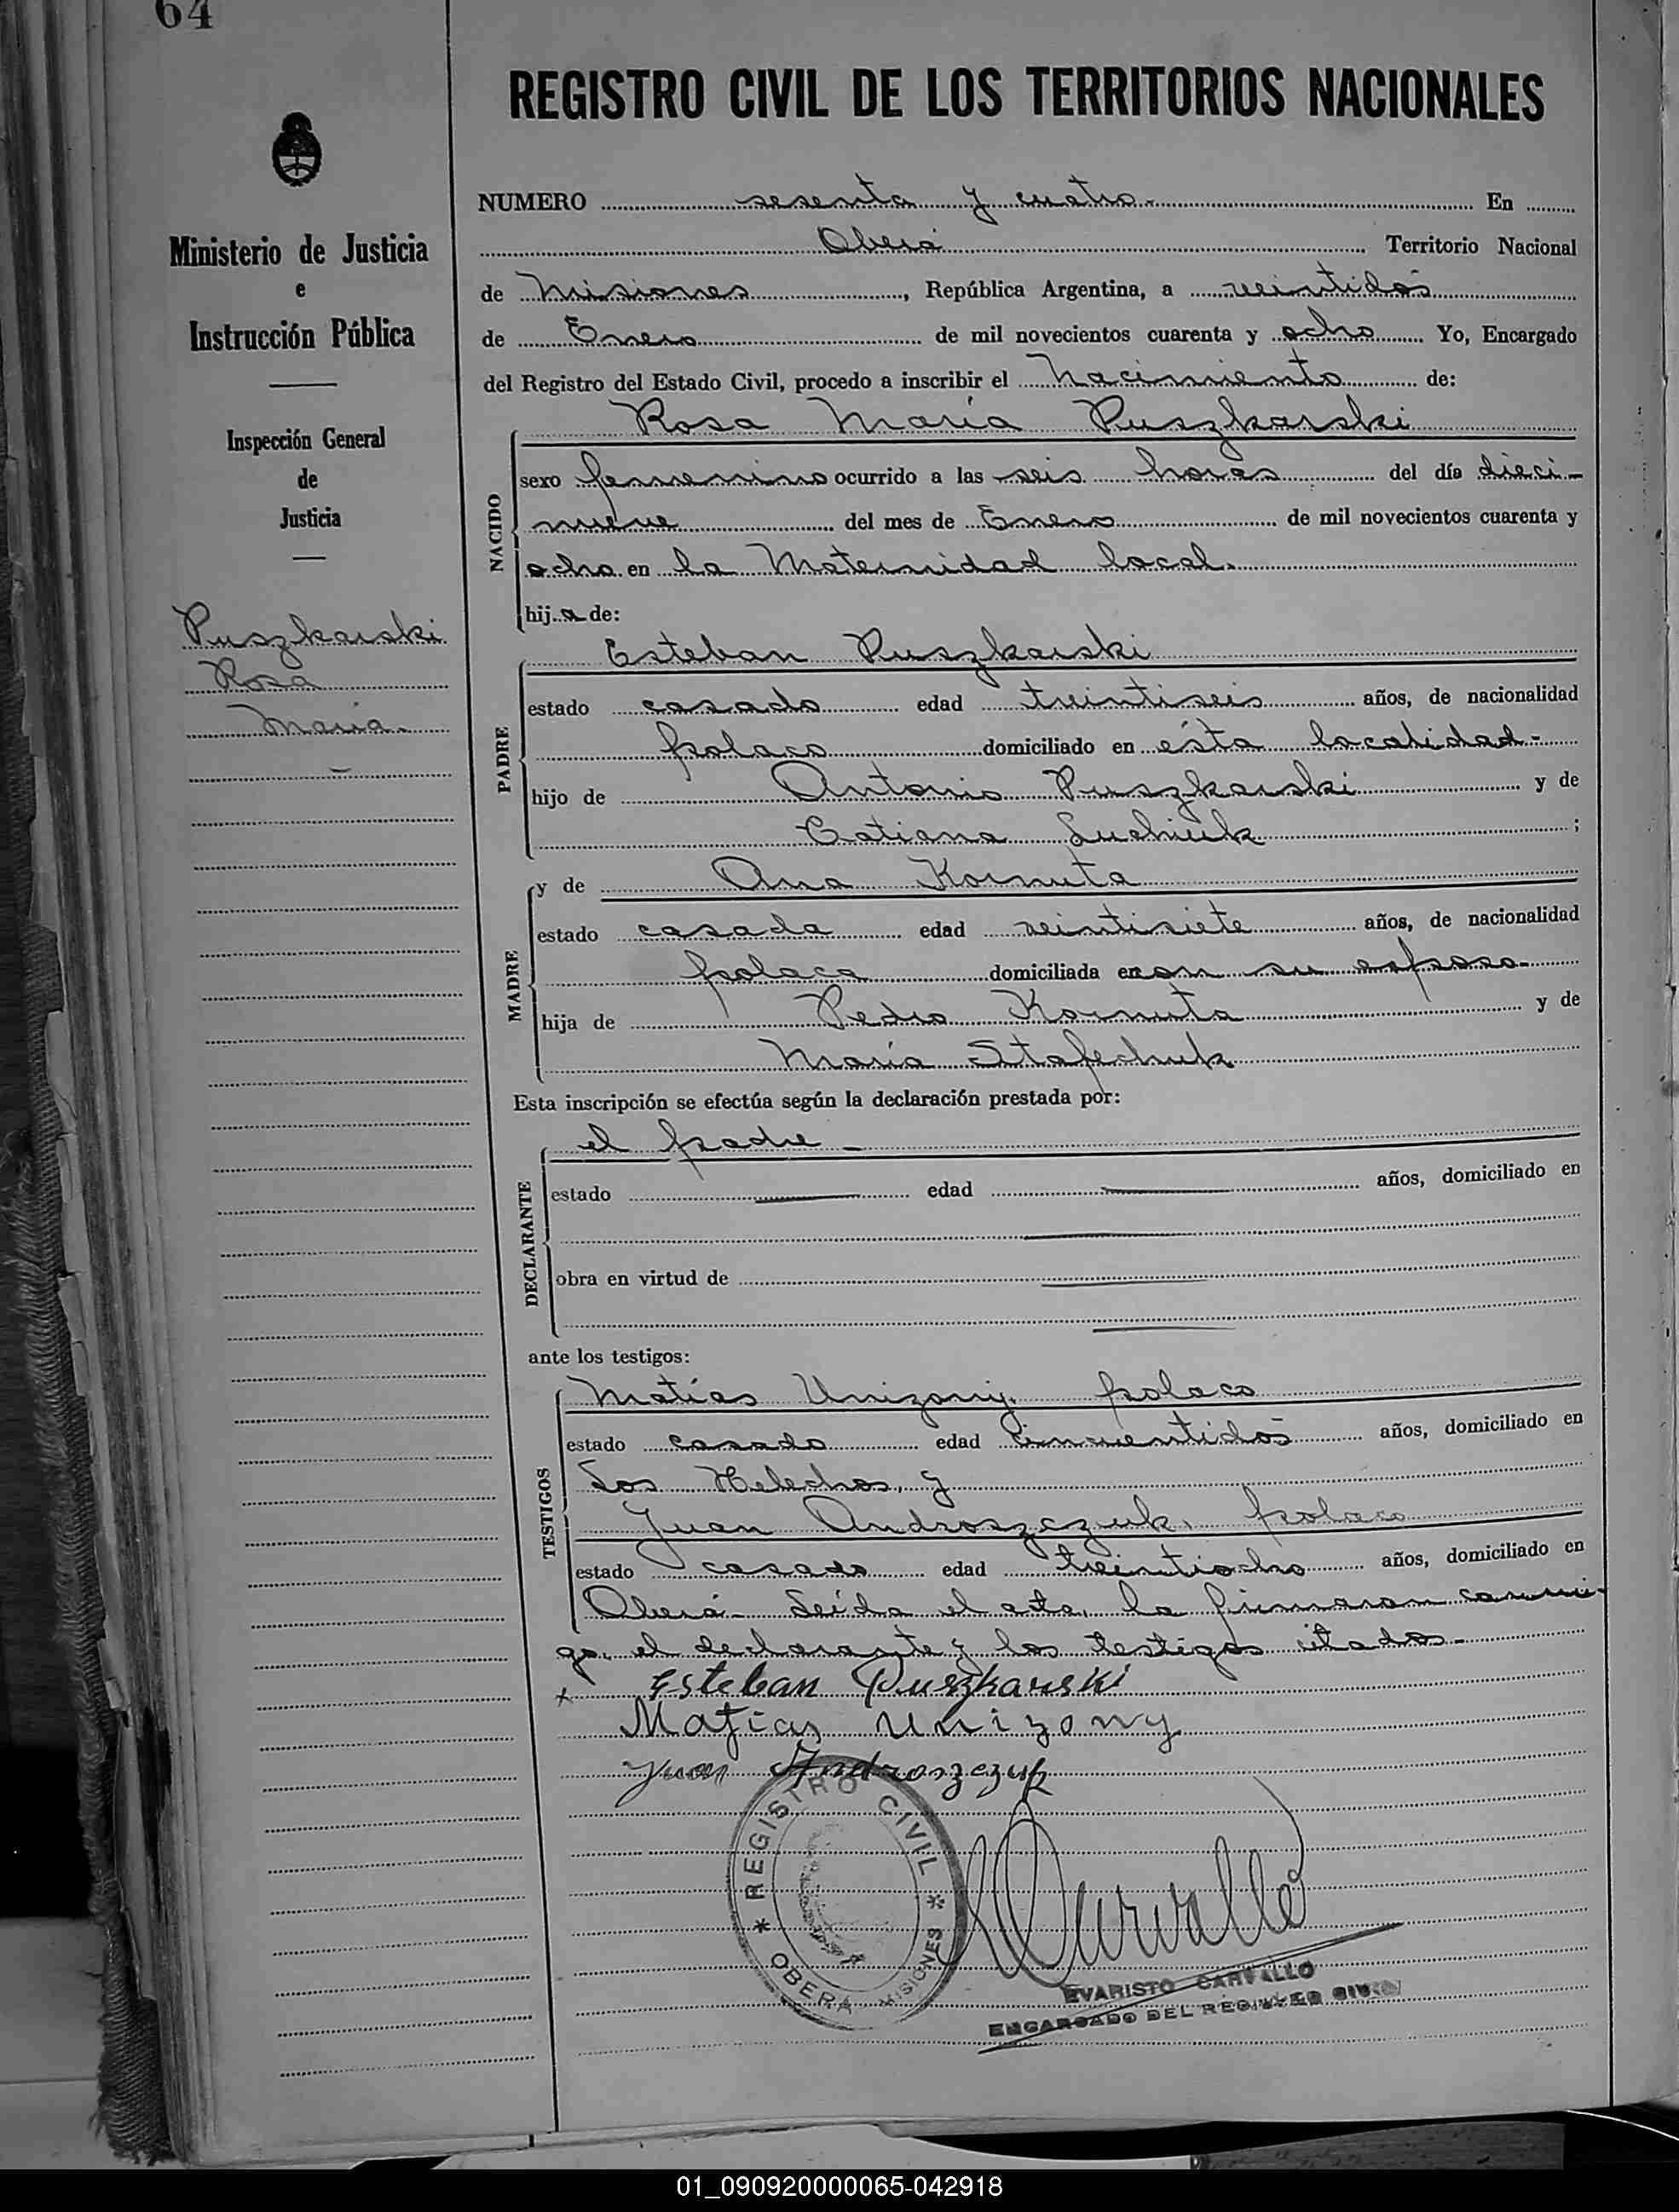 64
REGISTRO CIVIL DE LOS TERRITORIOS NACIONALES
Ministerio de Justicia
e
Instrucción Pública
Inspección General
de
Justicia
Puszkarski
Rosa
María.
NUMERO sesenta y cuatro. En
Oberá Territorio Nacional
de Misiones, República Argentina, a veintidós
de Enero de mil novecientos cuarenta y ocho Yo, Encargado
del Registro del Estado Civil, procedo a inscribir el Nacimiento de:
Rosa María Puszkarski
NACIDO
sexo femenino ocurrido a las seis horas del día dieci-
nueve del mes de Enero de mil novecientos cuarenta y
ocho en la Maternidad local.
hija de:
PADRE
Esteban Puszkarski
estado casado edad treintiseis años, de nacionalidad
polaco domiciliado en ésta localidad-
hijo de Antonio Puszkarski y de
Catiana Luchiuk;
MADRE
y de Ana Kornuta
estado casada edad veintisiete años, de nacionalidad
polaca domiciliada con su esposo-
hija de Pedro Kornuta y de
María Stafechuk
Esta inscripción se efectúa según la declaración prestada por:
DECLARANTE
el padre-
estado edad años, domiciliado en
obra en virtud de
ante los testigos:
TESTIGOS
Matías Unizony, polaco
estado casado edad cincuentidós años, domiciliado en
Los Helechos, y
Juan Androszczuk, polaco
estado casado edad treintiocho años, domiciliado en
Oberá- Leída el acta, la firmaron conmi-
go, el declarante y los testigos citados-
x Esteban Puszkarski
Matias Unizony
Juan Androszczuk
REGISTRO CIVIL
OBERA MISIONES
Carvallo
EVARISTO CARVALLO
ENCARGADO DEL REGISTRO CIVIL
01_090920000065-042918